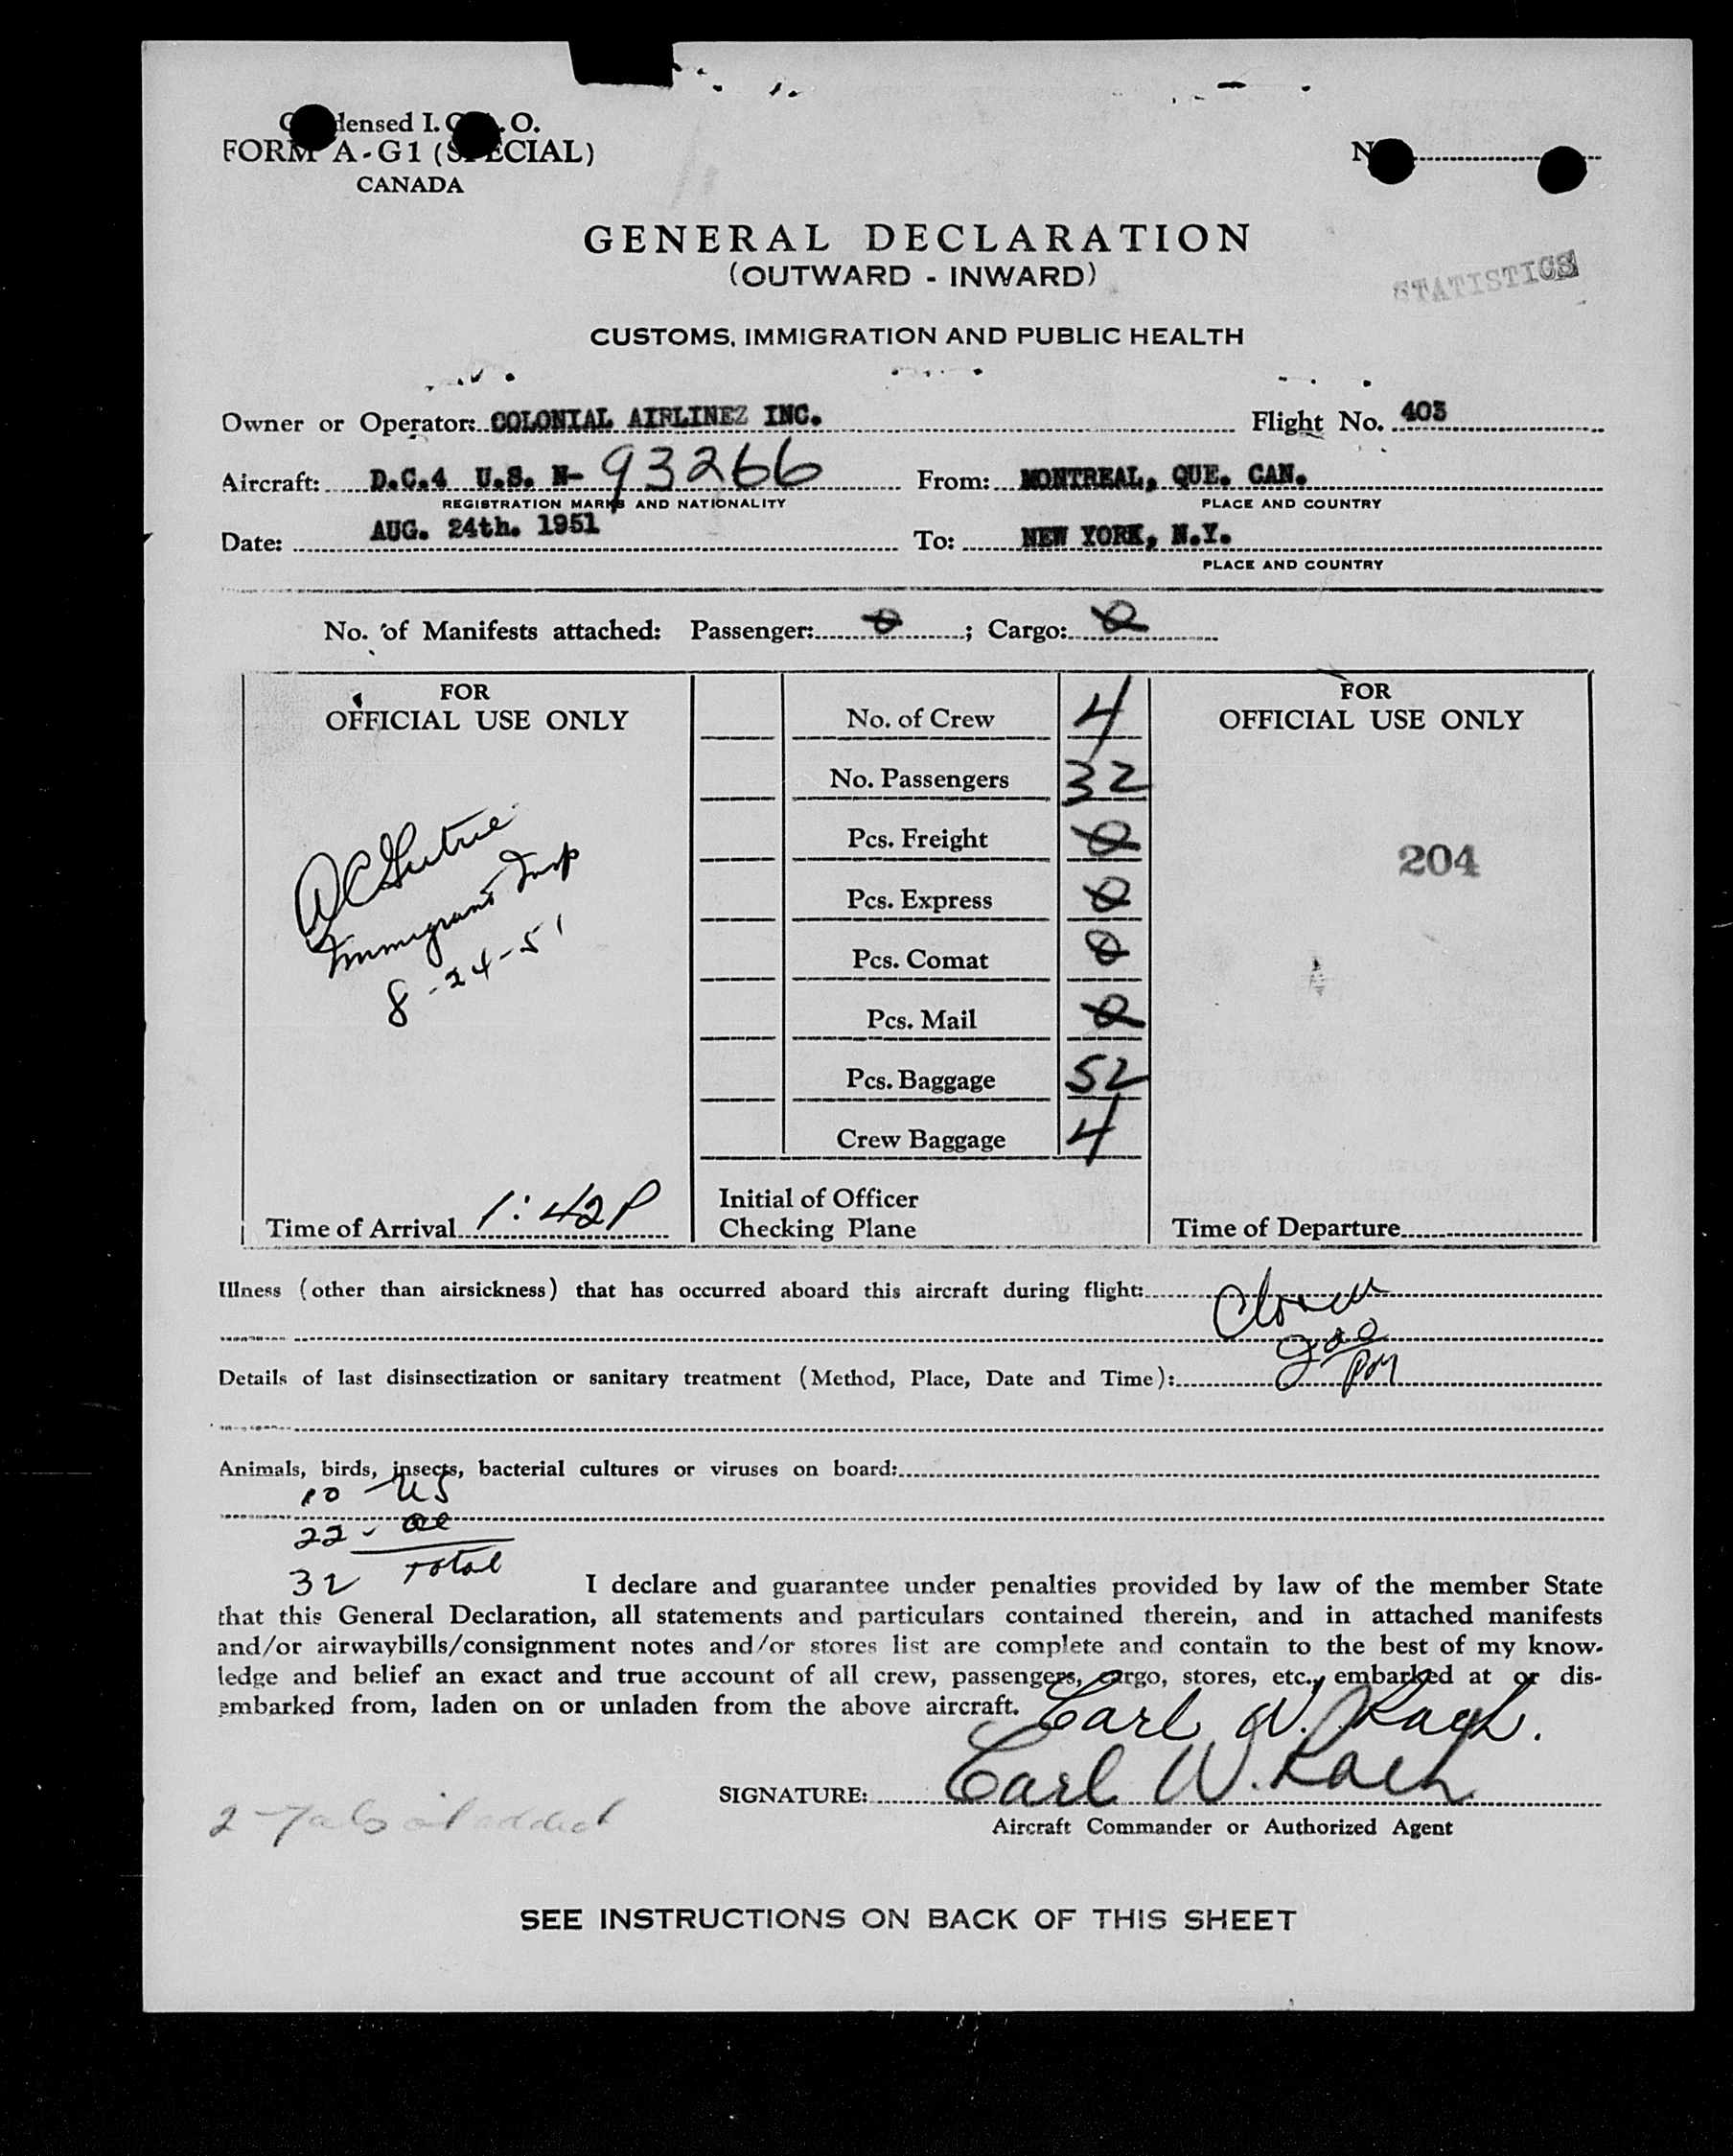 Condensed I.C.A.O.
FORM A-G1 (SPECIAL)
CANADA
GENERAL DECLARATION
(OUTWARD - INWARD)
STATISTICS
CUSTOMS, IMMIGRATION AND PUBLIC HEALTH
Owner or Operator: COLONIAL AIRLINEZ INC. Flight No. 403
Aircraft: D.C.4 U.S. N- 93266 From: MONTREAL, QUE. CAN.
REGISTRATION MARKS AND NATIONALITY PLACE AND COUNTRY
Date: AUG. 24th. 1951 To: NEW YORK, N.Y.
PLACE AND COUNTRY
No. of Manifests attached: Passenger: 0; Cargo: 0
FOR
OFFICIAL USE ONLY
Immigrant Insp
8-24-51
Time of Arrival 1:42P
No. of Crew 4
No. Passengers 32
Pcs. Freight 0
Pcs. Express 0
Pcs. Comat 0
Pcs. Mail 0
Pcs. Baggage 52
Crew Baggage 4
Initial of Officer
Checking Plane
FOR
OFFICIAL USE ONLY
204
Time of Departure
Illness (other than airsickness) that has occurred aboard this aircraft during flight:
Details of last disinsectization or sanitary treatment (Method, Place, Date and Time): PM
Animals, birds, insects, bacterial cultures or viruses on board:
10 - US
22 - al
32 Total
I declare and guarantee under penalties provided by law of the member State
that this General Declaration, all statements and particulars contained therein, and in attached manifests
and/or airwaybills/consignment notes and/or stores list are complete and contain to the best of my know-
ledge and belief an exact and true account of all crew, passengers, cargo, stores, etc., embarked at or dis-
embarked from, laden on or unladen from the above aircraft.
Carl W.
SIGNATURE: Carl W.
Aircraft Commander or Authorized Agent
SEE INSTRUCTIONS ON BACK OF THIS SHEET